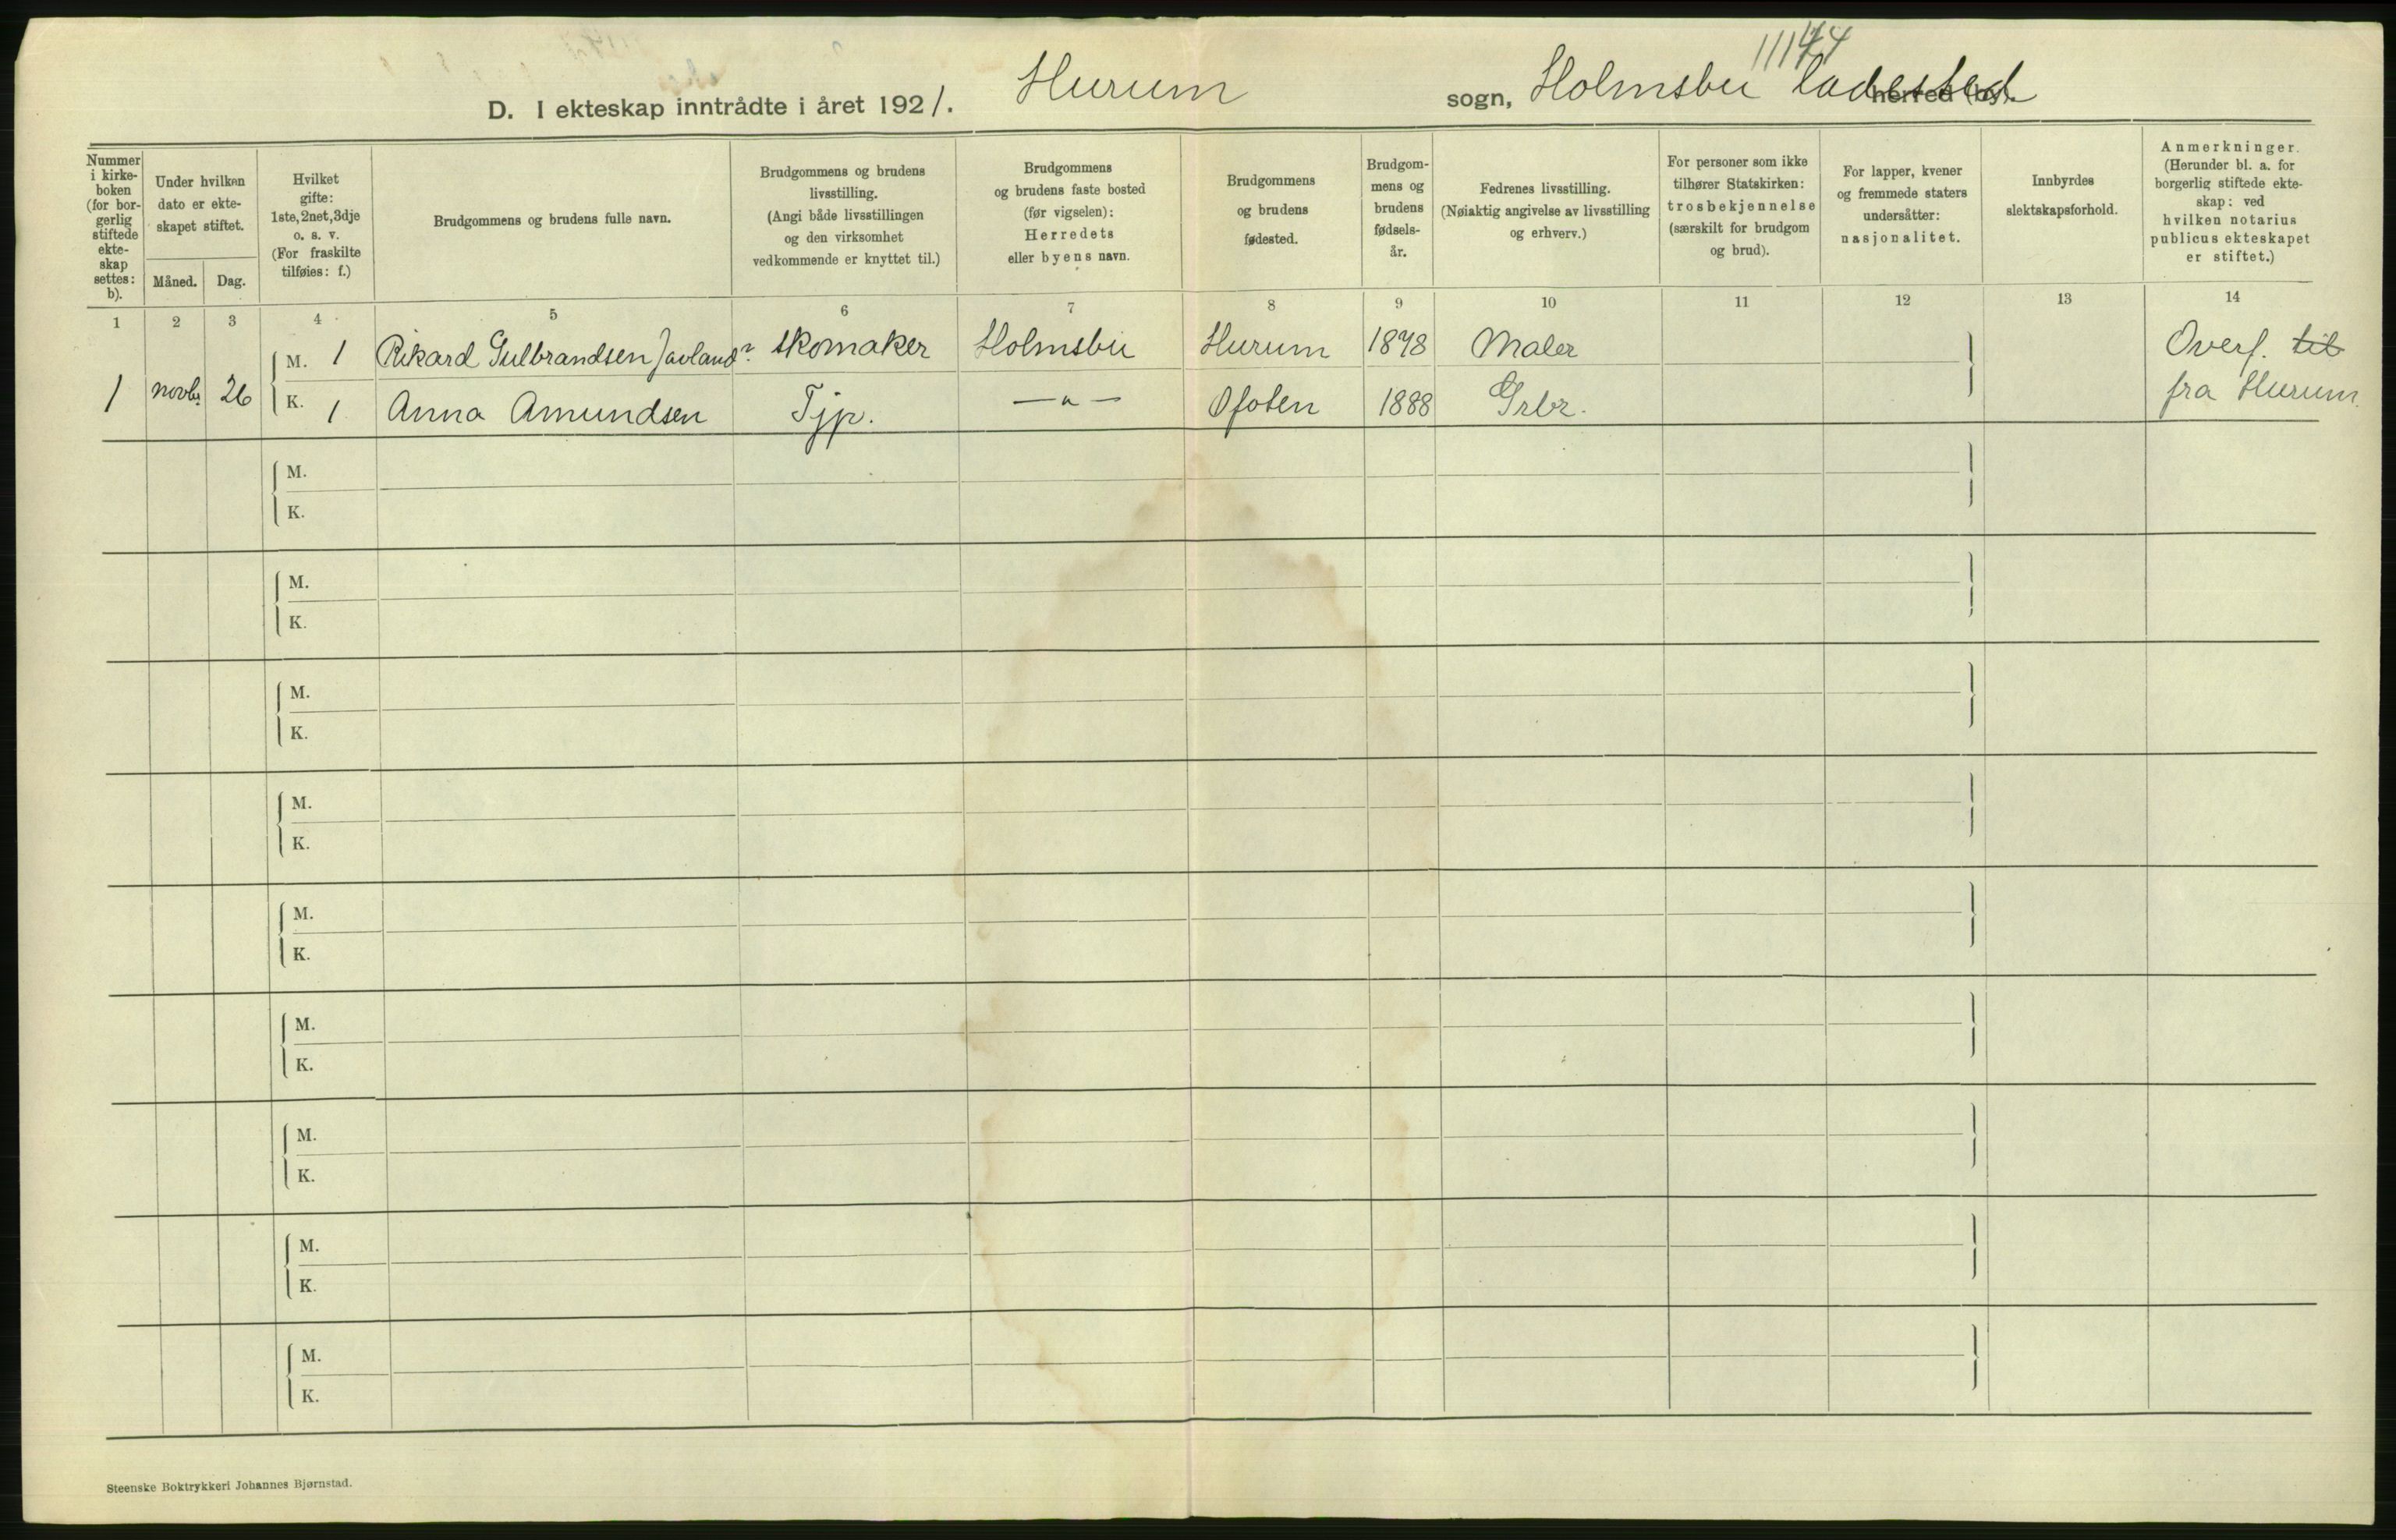 11144
D. I ekteskap inntrådte i året 1921. Hurum sogn, Holmsbu ladested herred (by).
Nummer i kirkeboken (for borgerlig stiftede ekteskap settes: b).
Under hvilken dato er ekteskapet stiftet.
Måned. Dag.
Hvilket gifte: 1ste, 2net, 3dje o. s. v. (For fraskilte tilføies: f.)
Brudgommens og brudens fulle navn.
Brudgommens og brudens livsstilling. (Angi både livsstillingen og den virksomhet vedkommende er knyttet til.)
Brudgommens og brudens faste bosted (før vigselen): Herredets eller byens navn.
Brudgommens og brudens fødested.
Brudgommens og brudens fødselsår.
Fedrenes livsstilling. (Nøiaktig angivelse av livsstilling og erhverv.)
For personer som ikke tilhører Statskirken: trosbekjennelse (særskilt for brudgom og brud).
For lapper, kvener og fremmede staters undersåtter: nasjonalitet.
Innbyrdes slektskapsforhold.
Anmerkninger. (Herunder bl. a. for borgerlig stiftede ekteskap: ved hvilken notarius publicus ekteskapet er stiftet.)
1 2 3 4 5 6 7 8 9 10 11 12 13 14
M. 1 Rikard Gulbrandsen skomaker Holmsbu Hurum 1878 Maler Overf. til
1 novbr 26 K. 1 Anna Amundsen Tjp. —"— Ofoten 1888 Grbr. fra Hurum.
M.
K.
M.
K.
M.
K.
M.
K.
M.
K.
M.
K.
M.
K.
M.
K.
M.
K.
Steenske Boktrykkeri Johannes Bjørnstad.